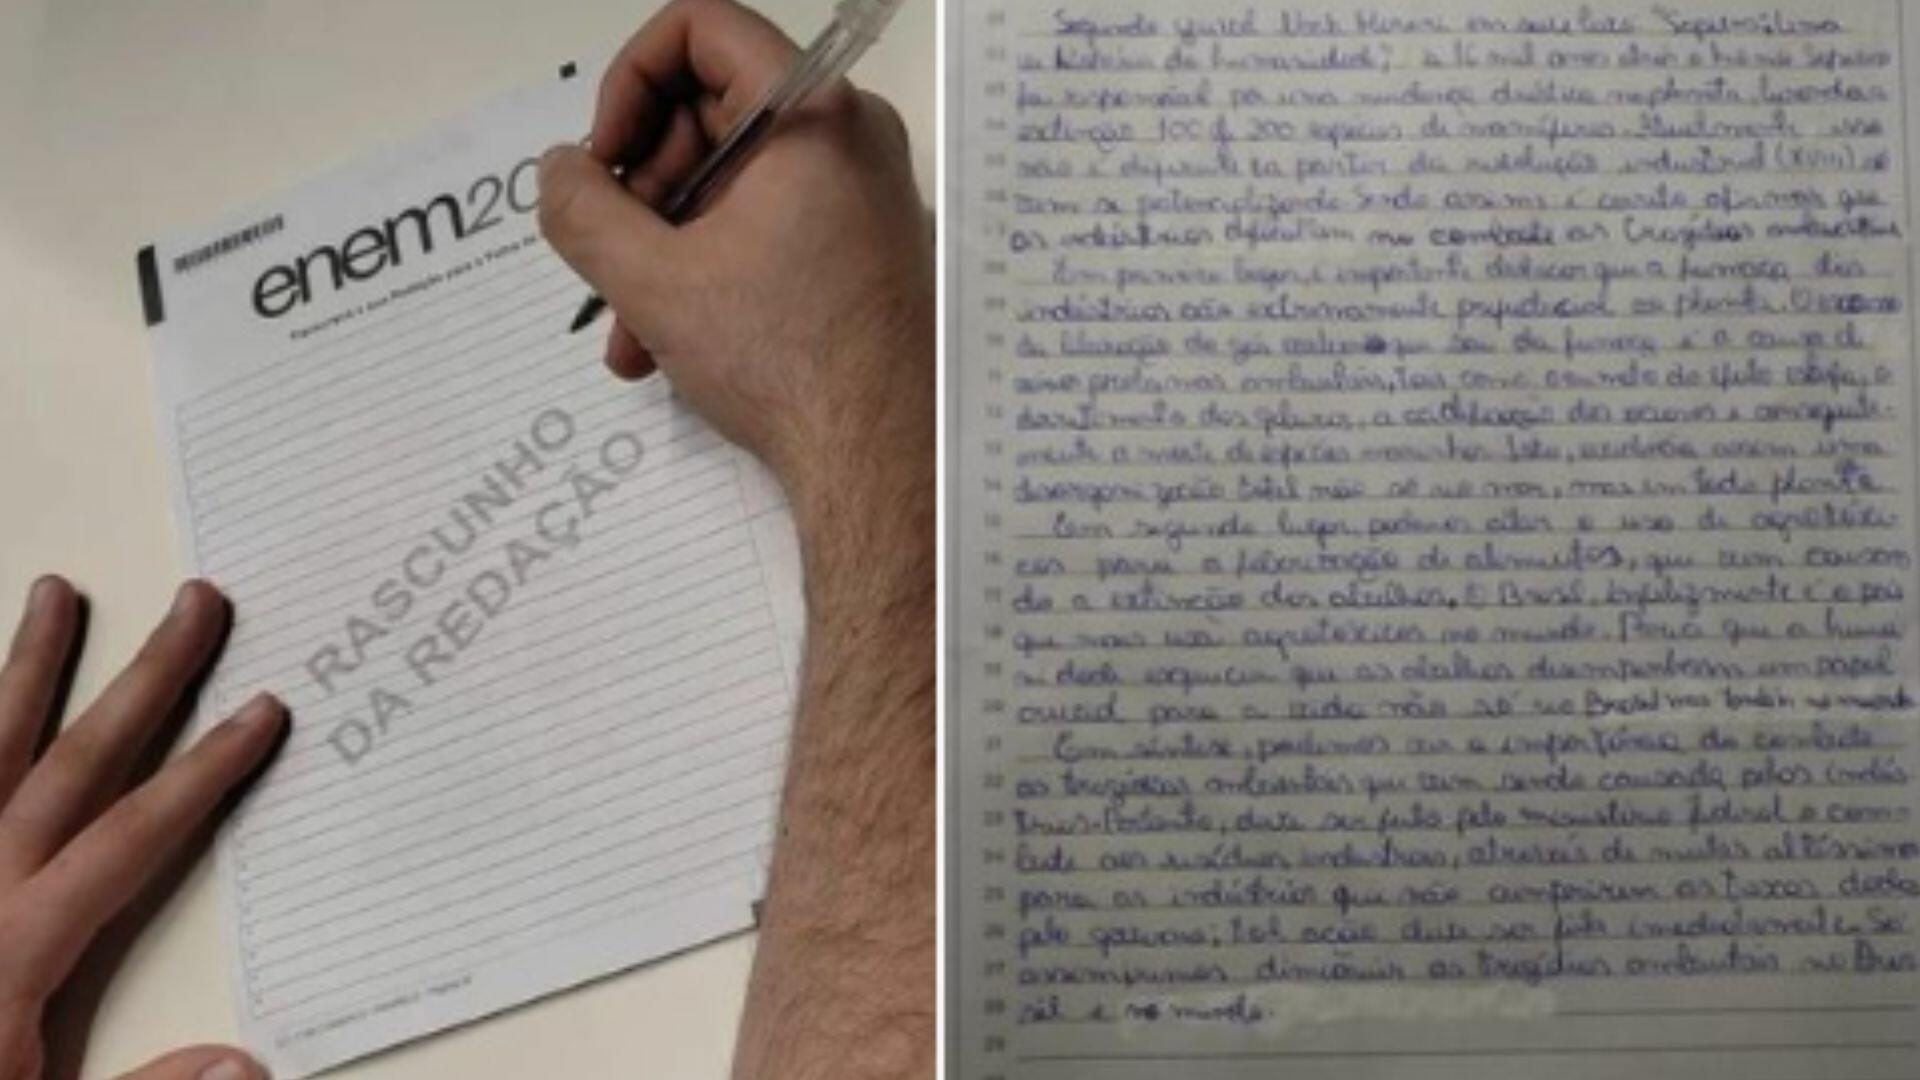 enem20
RASCUNHO
DA REDAÇÃO
Segundo Yuval Noah Harari em seu livro "Sapiens: Uma
história da humanidade", a 16 mil anos atrás o homo Sapiens
foi responsável por uma mudança drástica no planeta, levando a
extinção 100 de 200 espécies de mamíferos. Atualmente isso
não é diferente e a partir da revolução industrial (XVIII) só
vem se potencializando. Sendo assim é correto afirmar que
as indústrias dificultam no combate as tragédias ambientais
Em primeiro lugar, é importante destacar que a fumaça das
indústrias são extremamente prejudicial ao planeta. O excesso
de liberação do gás que sai da fumaça é a causa de
problemas ambientais, tais como aumento do efeito estufa, o
derretimento das geleiras, a acidificação dos oceanos e consequente-
mente a morte de espécies marinhas. Isto, assim uma
desorganização total não só no mar, mas em todo planeta
Em segundo lugar, podemos citar o uso de agrotóxi-
cos para a fabricação de alimentos, que vem causan
do a extinção das abelhas. O Brasil, infelizmente é o país
que mais usa agrotóxicos no mundo. Parece que a huma
nidade esqueceu que as abelhas desempenham um papel
crucial para a vida não só no Brasil mas também no mundo
Em síntese, podemos ver a importância do combate
as tragédias ambientais que vem sendo causada pelas indús
trias. Portanto, deve ser feito pelo ministério federal o com-
bate aos resíduos industriais, através de multas altíssimas
para as indústrias que não cumprirem as taxas dada
pelo governo; tal ação deve ser feita imediatamente. Só
assim diminuir as tragédias ambientais no Bra
sil e no mundo.